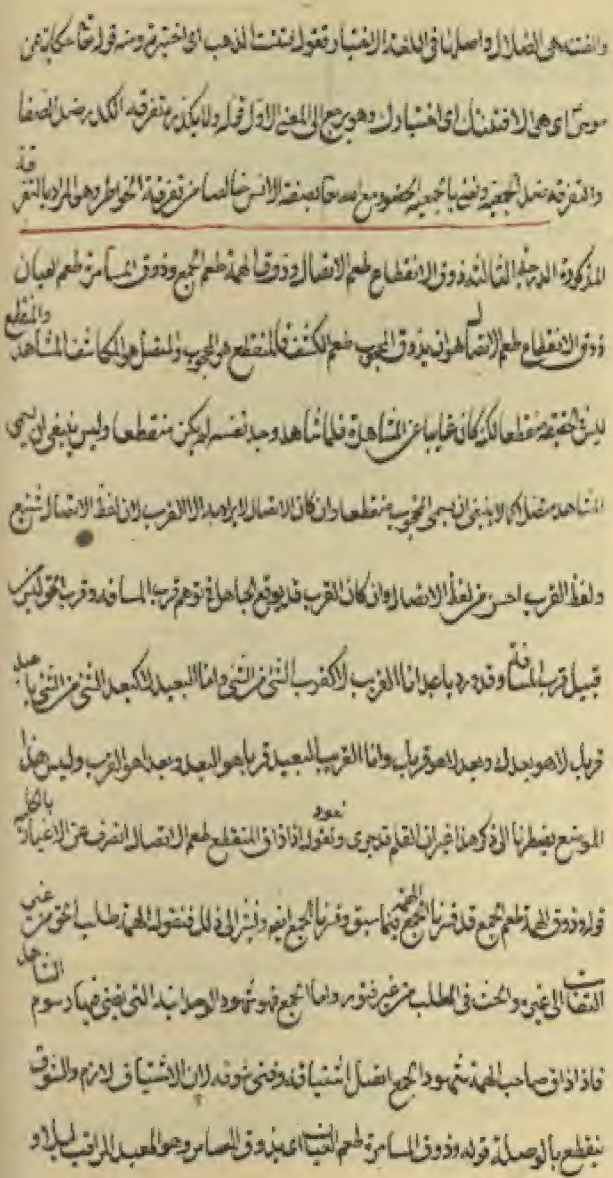 والفتنة هى الضلال واصلها فى اللغة الاختبار تقول فتنت الذهب اى اختبرته ومنه قوله تعا حكاية عن
موسى ان هى الا فتنتك اى اختبارك وهو يرجع الى المعنى الاول قوله ولا يكدره تفرقه الكدر ضد الصفا
والتفرقة ضد الجمعية ونعنى بالجمعية الحضور مع الله تعا بصفة الانس خالصا من تفرقة الخواطر وهو المراد بالتفرقة
المذكورة الدرجة الثالثة ذوق الانقطاع طعم الاتصال وذوق الهمة طعم الجمع وذوق المسامرة طعم العيان
ذوق الانقطاع طعم الاتصال هو ان يذوق المحجوب طعم الكشف فالمنقطع هو المحجوب والمتصل هو المكاشف المشاهد والمنقطع
ليس فى الحقيقة منقطعا لكن كان غايبا عن المشاهدة فلما شاهد وجد نفسه لم يكن منقطعا وليس ينبغى ان يسمى
المشاهد متصلا كما لا ينبغى ان يسمى المحجوب منقطعا وان كان الاتصال لا يراد به الا القرب لان لفظ الاتصال شنيع
ولفظ القرب احسن من لفظ الاتصال وان كان القرب قد يوقع الجاهل فى توهم قرب المسافة وقرب الحق ليس من
قبيل قرب المسافة وقد ورد يا عبد انا القريب لا كقرب الشئ من الشئ وانا البعيد لا كبعد الشئ من الشئ يا عبد
قربك لا هو بعدك وبعدك لا هو قربك وانا القريب البعيد قربا هو البعد وبعدا هو القرب وليس هذا
الموضع يضطرنا الى ذكر هذا غير ان القلم قد جرى نعود ونقول اذا ذاق المنقطع طعم الاتصال انصرف عن الاغيار بالكلية
قوله وذوق الهمة طعم الجمع قد فسرنا الهمة فيما سبق وفسرنا الجمع ايضا ونشير الى ذلك فنقول الهمة طلب الحق من غير
التفات الى غيره والحث فى المطلب من غير فتور واما الجمع فهو شهود الوحدانية التى يفنى فيها رسوم الشاهد
فاذا ذاق صاحب الهمة شهود الجمع اتصل اشتياقه وفنى شوقه لان الاشتياق لازم والشوق
ينقطع بالوصلة قوله وذوق المسامرة طعم العيان اى يذوق المسامر وهو العبد المراقب ليلا و